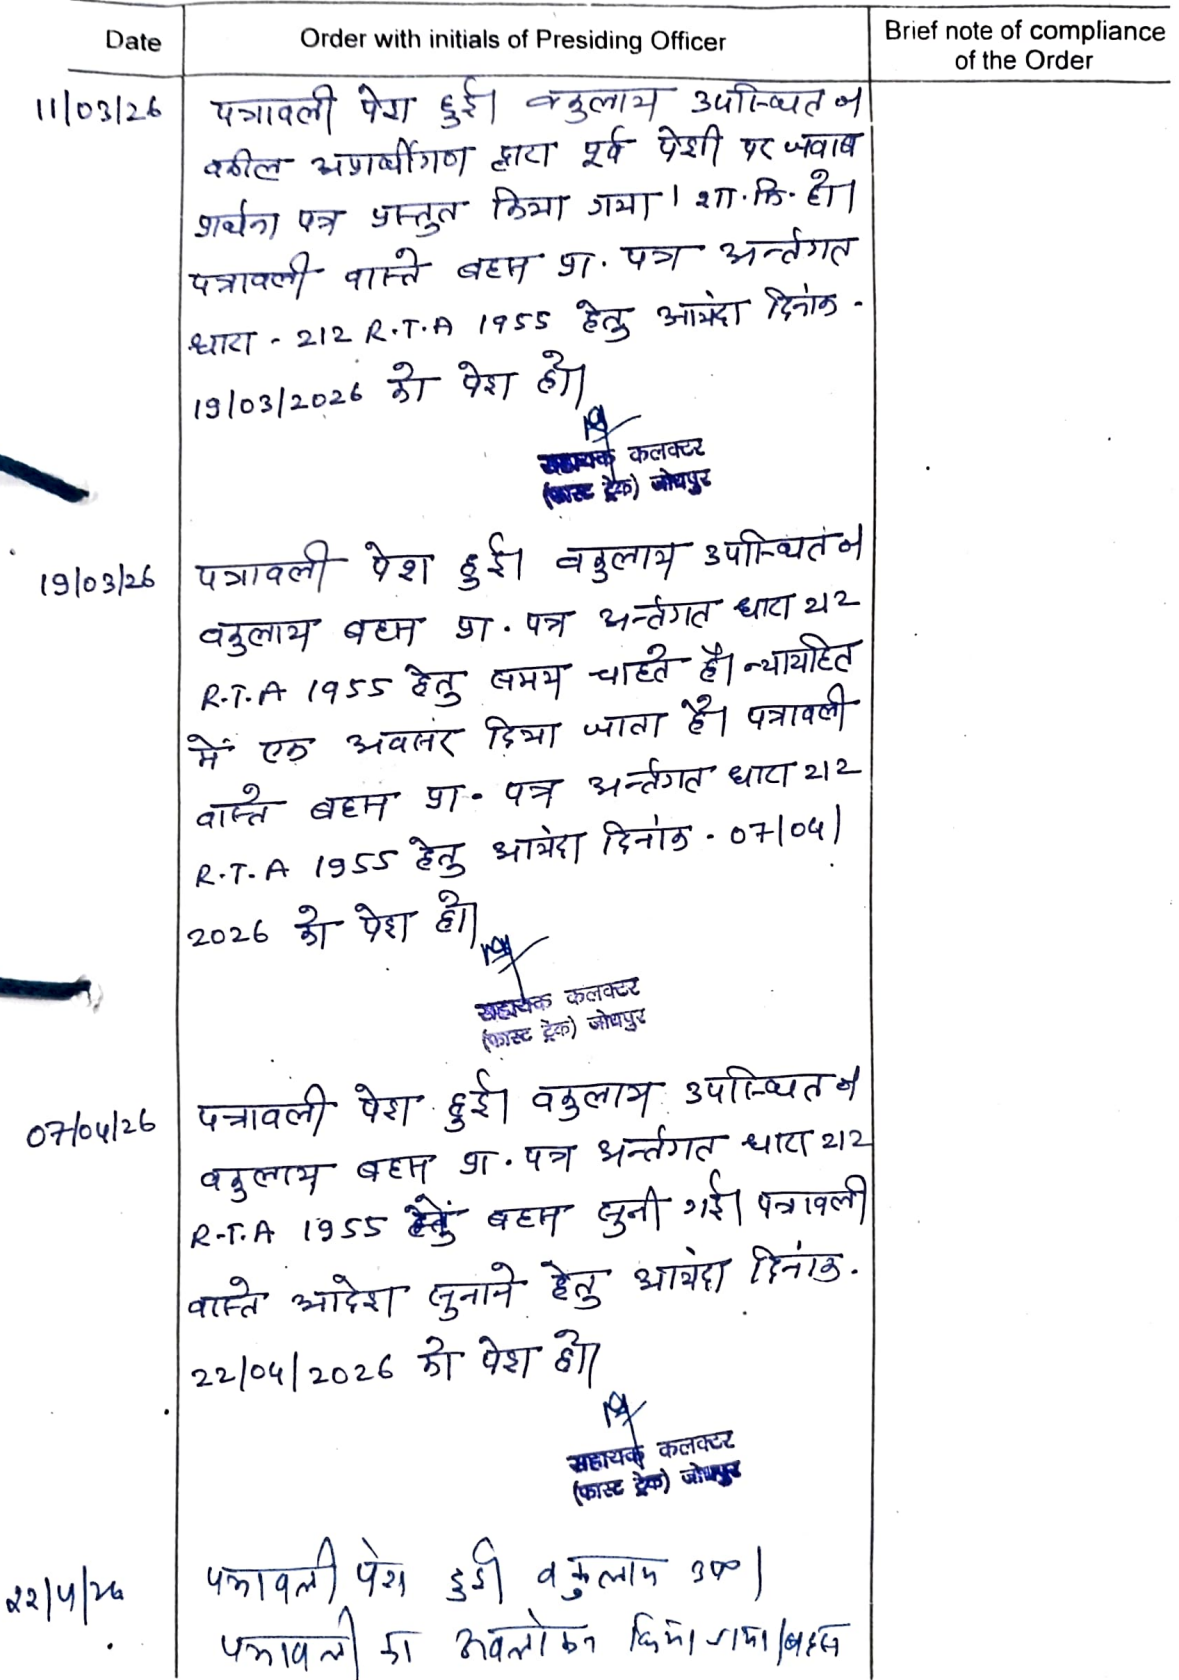 Date
Order with initials of Presiding Officer
Brief note of compliance
of the Order
11/03/26
पत्रावली पेश हुई। वकुलाय उपस्थित।
वकील अप्रार्थीगण द्वारा पूर्व पेशी पर जवाब
प्रार्थना पत्र प्रस्तुत किया गया। शा.मि. हो।
पत्रावली वास्ते बहस प्रा. पत्र अर्न्तगत
धारा - 212 R.T.A 1955 हेतु आयंदा दिनांक -
19/03/2026 को पेश हो।
सहायक कलक्टर
(फास्ट ट्रेक) जोधपुर
19/03/26
पत्रावली पेश हुई। वकुलाय उपस्थित।
वकुलाय बहस प्रा. पत्र अर्न्तगत धारा 212
R.T.A 1955 हेतु समय चाहते है। न्यायहित
में एक अवसर दिया जाता है। पत्रावली
वास्ते बहस प्रा. पत्र अर्न्तगत धारा 212
R.T.A 1955 हेतु आयंदा दिनांक - 07/04/
2026 को पेश हो।
सहायक कलक्टर
(फास्ट ट्रेक) जोधपुर
07/04/26
पत्रावली पेश हुई। वकुलाय उपस्थित।
वकुलाय बहस प्रा. पत्र अर्न्तगत धारा 212
R.T.A 1955 हेतु बहस सुनी गई। पत्रावली
वास्ते आदेश सुनाने हेतु आयंदा दिनांक -
22/04/2026 को पेश हो।
सहायक कलक्टर
(फास्ट ट्रेक) जोधपुर
22/4/26
पत्रावली पेश हुई। वकुलाय उप०।
पत्रावली का अवलोकन किया गया। बहस